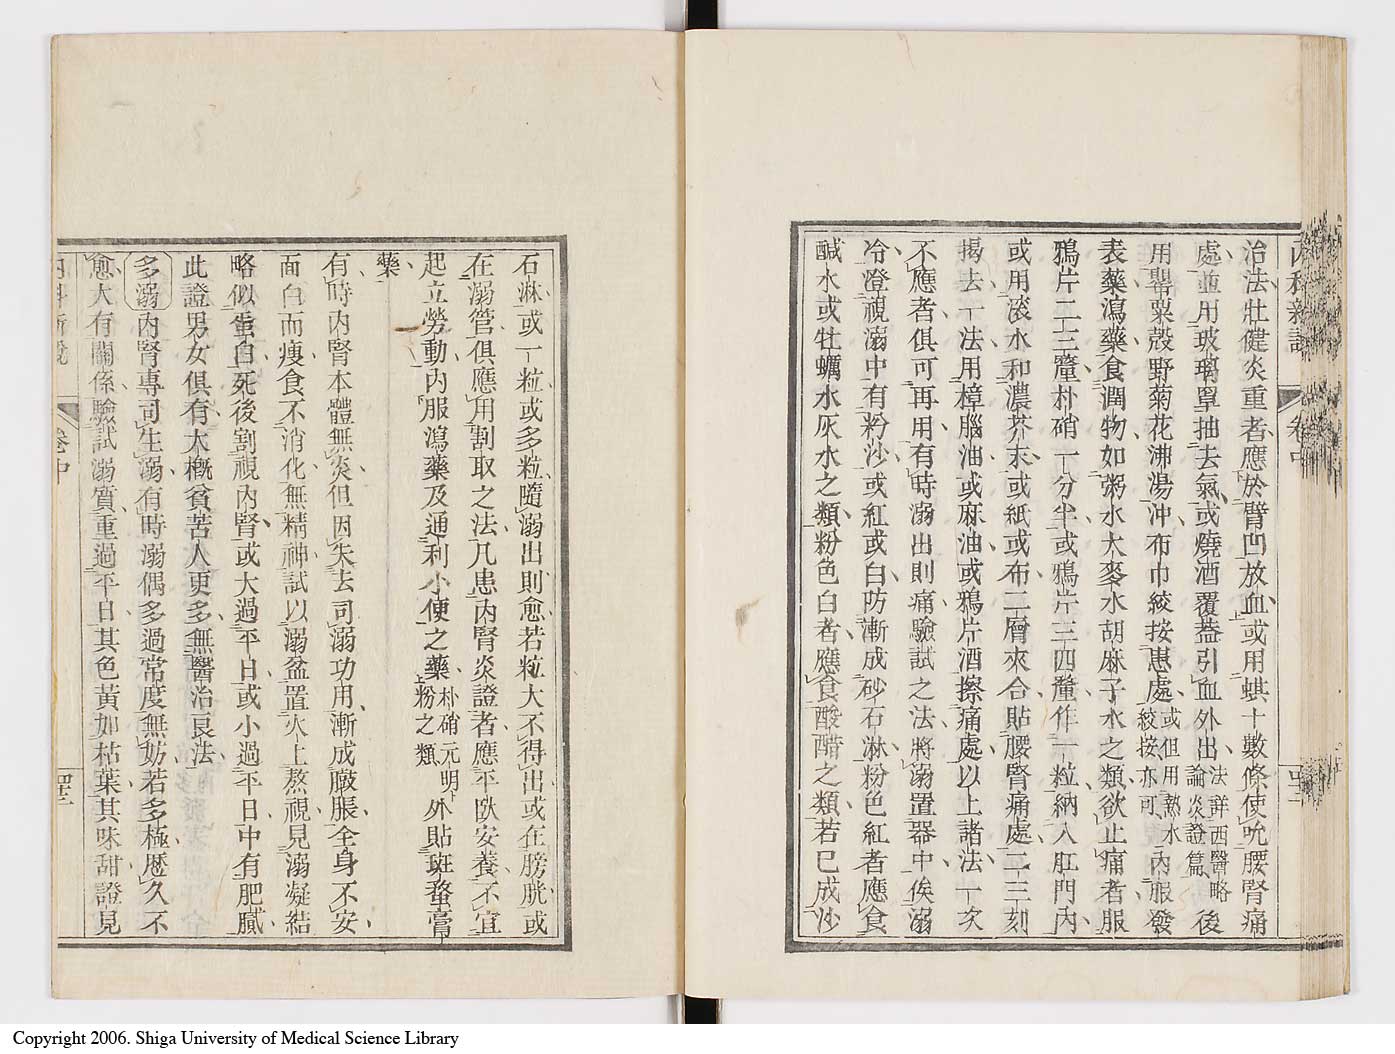 內科新說
卷中
四二
治法壯健炎重者應於臂凹放血或用蜞十數條使吮腰腎痛
處並用玻璃罩抽去氣或燒酒覆葢引血外出法詳西醫略論炎證篇後
用罌粟殼野菊花沸湯冲布巾絞按患處或但用熱水絞按亦可內服發
表藥瀉藥食潤物如粥水大麥水胡麻子水之類欲止痛者服
鴉片二三釐朴硝一分半或鴉片三四釐作一粒納入肛門內
或用滾水和濃芥末或紙或布二層夾合貼腰腎痛處二三刻
揭去一法用樟腦油或麻油或鴉片酒擦痛處以上諸法一次
不應者俱可再用有時溺出則痛驗試之法將溺置器中俟溺
冷澄視溺中有粉沙或紅或白防漸成砂石淋粉色紅者應食
鹹水或牡蠣水灰水之類粉色白者應食酸醋之類若已成沙
石淋或一粒或多粒隨溺出則愈若粒大不得出或在膀胱或
在溺管俱應用割取之法凡患內腎炎證者應平臥安養不宜
起立勞動內服瀉藥及通利小便之藥朴硝元明粉之類外貼斑蝥膏
藥
有時內腎本體無炎但因失去司溺功用漸成臌脹全身不安
面白而瘦食不消化無精神試以溺盆置火上熬視見溺凝結
略似蛋白死後割視內腎或大過平日或小過平日中有肥膩
此證男女俱有大槪貧苦人更多無醫治良法
多溺內腎專司生溺有時溺偶多過常度無妨若多極歷久不
愈大有關係驗試溺質重過平日其色黃如枯葉其味甜證見
內科新說
卷中
四三
Copyright 2006. Shiga University of Medical Science Library